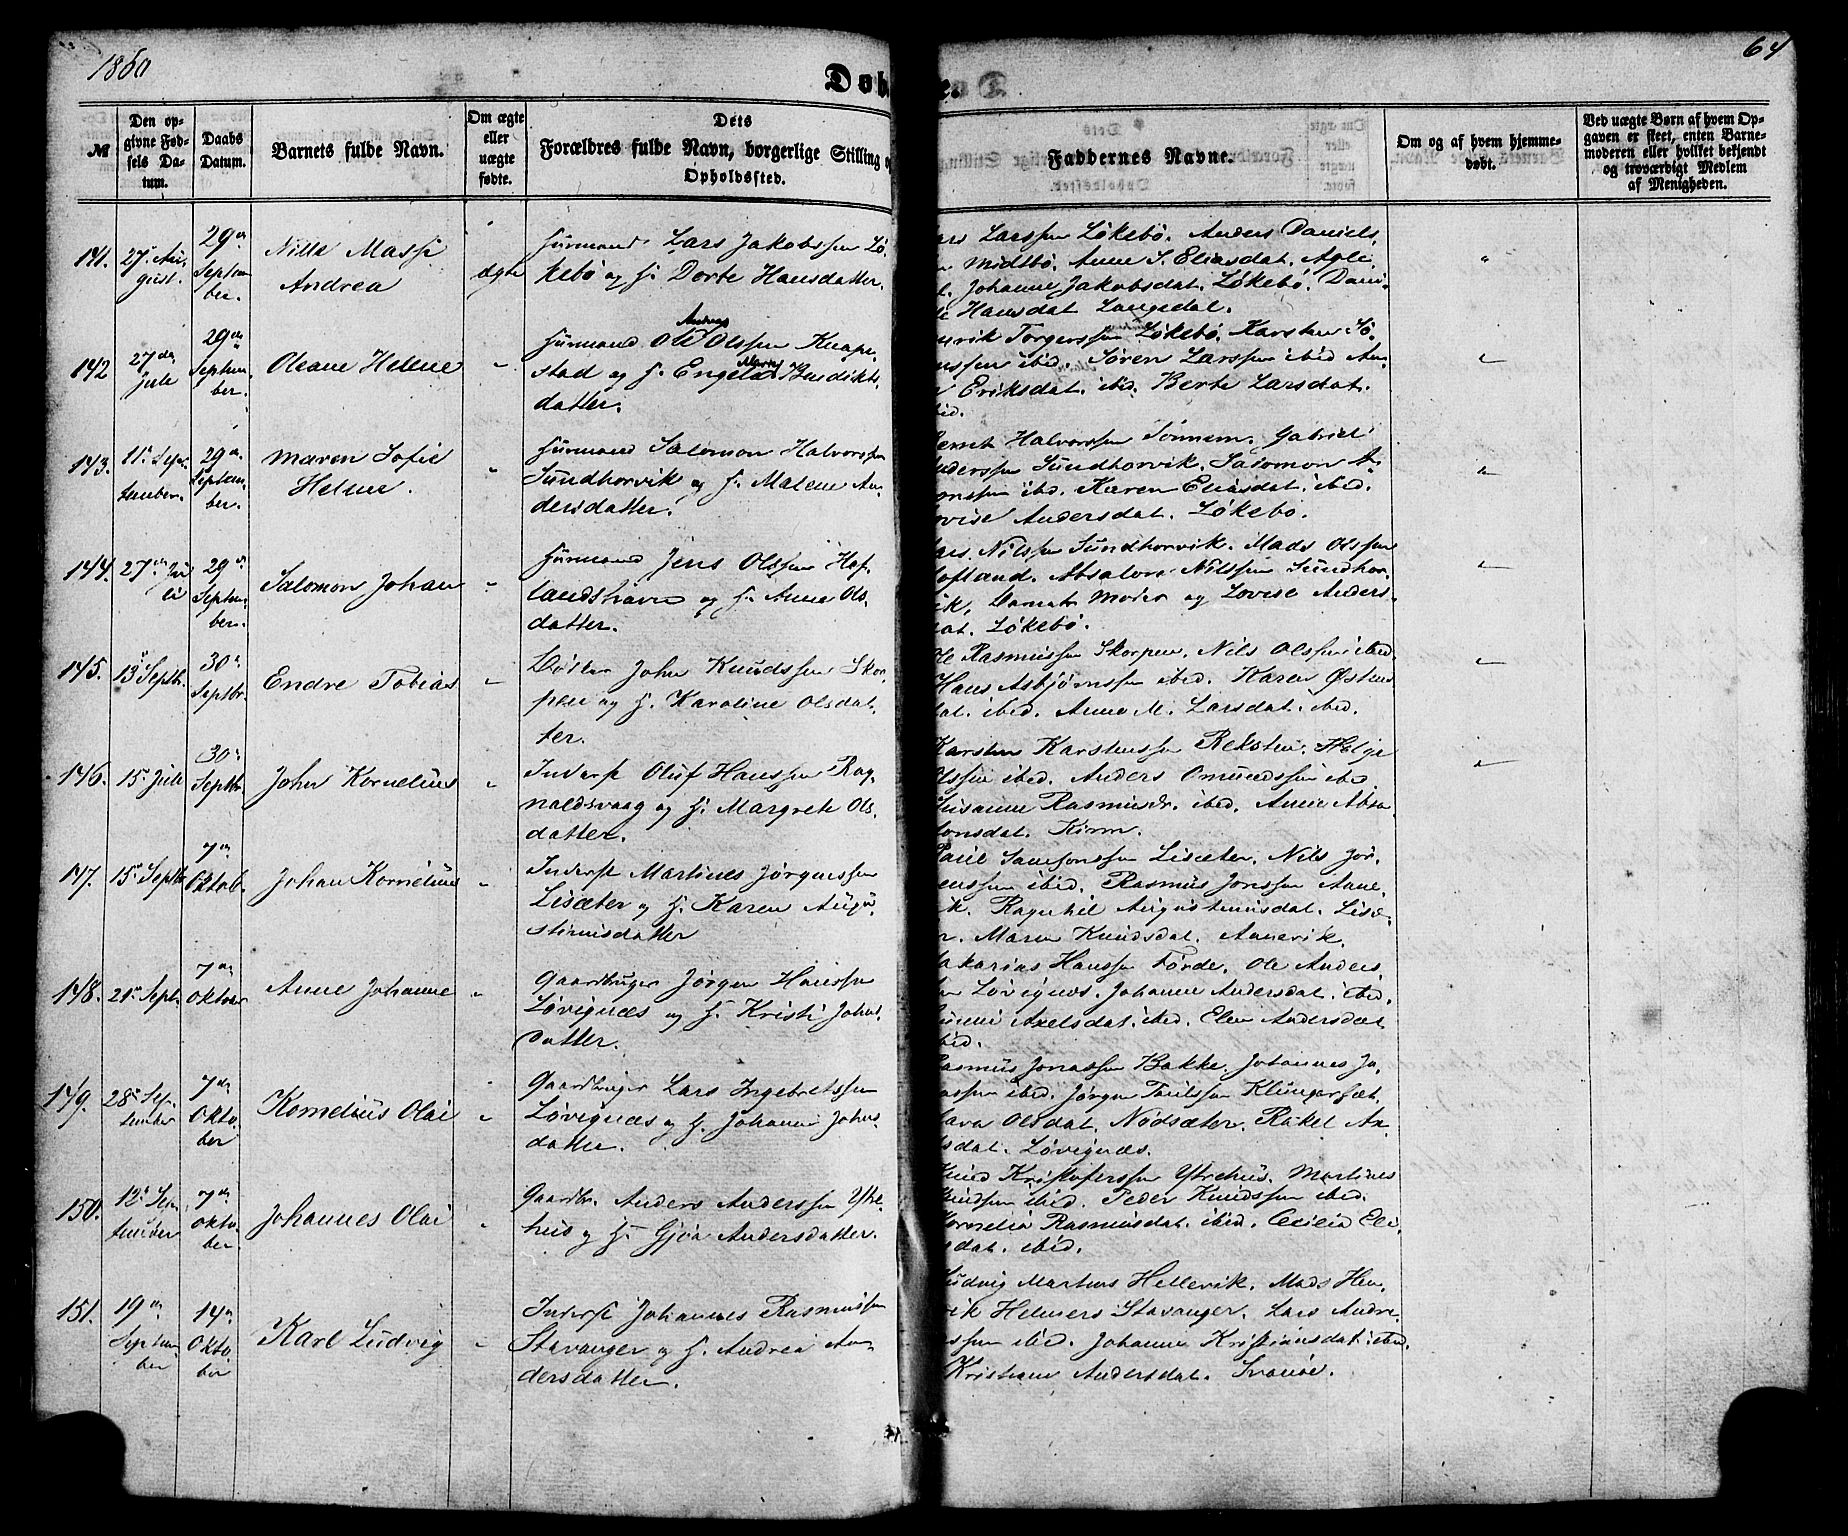 1860
64
Døbte.
№
Den opgivne Fødsels Datum.
Daabs Datum.
Barnets fulde Navn.
Om ægte eller uægte fødte.
Dets Forældres fulde Navn, borgerlige Stilling og Opholdssted.
Faddernes Navne.
Om og af hvem hjemmedøbt.
Ved uægte Børn af hvem Opgaven er skeet, enten Barnemoderen eller hvilket bekjendt og troværdigt Medlem af Menigheden.
141. 27 August. 29de September. Nille Massi Andrea ægte
Huusmand Lars Jakobssen Løkebø og H. Dorte Hansdatter.
Larssen Løkebø. Anders Daniels.
Midtbø. Anne S. Eliasdat.
Johanne Jakobsdat. Løkebø. Dani-
Hansdat Langedal.
142 27de Juli 29de September. Oleane Helene
Huusmand Ole Andreas Olssen Knapstad og H. Engel Marie Bendiktsdatter.
Torgerssen Løkebø. Karsten
ibid. Søren Larssen ibid
Eriksdat. ibid. Berte Larsdat.
143. 11te September. 29de September. Maren Sofie Helene.
Huusmand Salomon Halvorssen Sundhorvik og H. Malene Andersdatter.
Halvorssen Gabriel
Anderssen Sundhorvik. Salomon
ibid. Karen Eliasdat. ibid.
Andersdat. Løkebø.
144. 27de Juli 29de September. Salomon Johan
Huusmand Jens Olssen Hoflandshavn og H. Anne Olsdatter.
Nilssen Sundhorvik. Mads Olssen
Hofland. Absalon Nilssen Sundhor-
Barnets Moder og Lovise Anders-
dat. Løkebø.
145. 13 Septbr. 30te Septbr. Endre Tobias
John Knudssen Skorpen og H. Karoline Olsdatter.
Ole Rasmussen Skorpen. Nils Olssen ibid.
Hans Asbjørnssen ibid. Karen Østens
dat. ibid. Anne M. Larsdat. ibid.
146. 15de Juli 30te Septbr. John Kornelius
Inderst Oluf Hanssen Ragnaldsvaag og H. Margrete Olsdatter.
Karsten Karstenssen Reksten. Helge
Olssen ibid. Anders Omundssen ibid
Susanne Rasmusdr. ibid. Anne Absa-
lonsdat. Kinn.
147. 15de Septbr 7de Oktob. Johan Kornelius
Inderst Martinus Jørgenssen Lisæter og H. Karen Augustinusdatter
Samsonssen Lisæter. Nils Jør-
genssen ibid. Rasmus Jonssen Anne-
vik. Ragnhil Augustinusdat. Lisæ-
Maren Knudsdat. Annevik.
148. 21de Septr. 7de Oktober Anne Johanne
Gaardbruger Jørgen Hanssen Løvignæs og H. Kristi Johnsdatter.
Sakarias Hanssen Førde. Ole Anders-
Løvignæs. Johanne Andersdat. ibid.
Axelsdat. ibid. Elen Andersdat
ibid.
149. 28de September 7de Oktober Kornelius Olai
Gaardbruger Lars Ingebretssen Løvignæs og H. Johanne Johnsdatter.
Rasmus Jonassen Bakke. Johannes Jo-
nassen ibid. Jørgen Paulssen Klungersæt.
Olsdat. Nødsæter. Rakel An-
dsdat. Løvignæs.
150. 12te September 7de Oktober Johannes Olai
Gaardbr. Anders Anderssen Ytrehus og H. Gjøa Andersdatter.
Knud Kristoferssen Ytrehus. Martines
Knudsen ibid. Peder Knudssen ibid.
Kornelia Rasmusdat. ibid. Cecilia Eli-
asdat. ibid.
151. 19de September 14de Oktober Karl Ludvig
Inderst Johannes Rasmussen Stavanger og H. Andrea Andersdatter.
Ludvig Martins Hellevik. Mads Hen-
rik Helmers Stavanger. Lars Andre-
assen ibid. Johanne Kristiansdat. ibid.
Kristiane Andersdat. Svanøe.